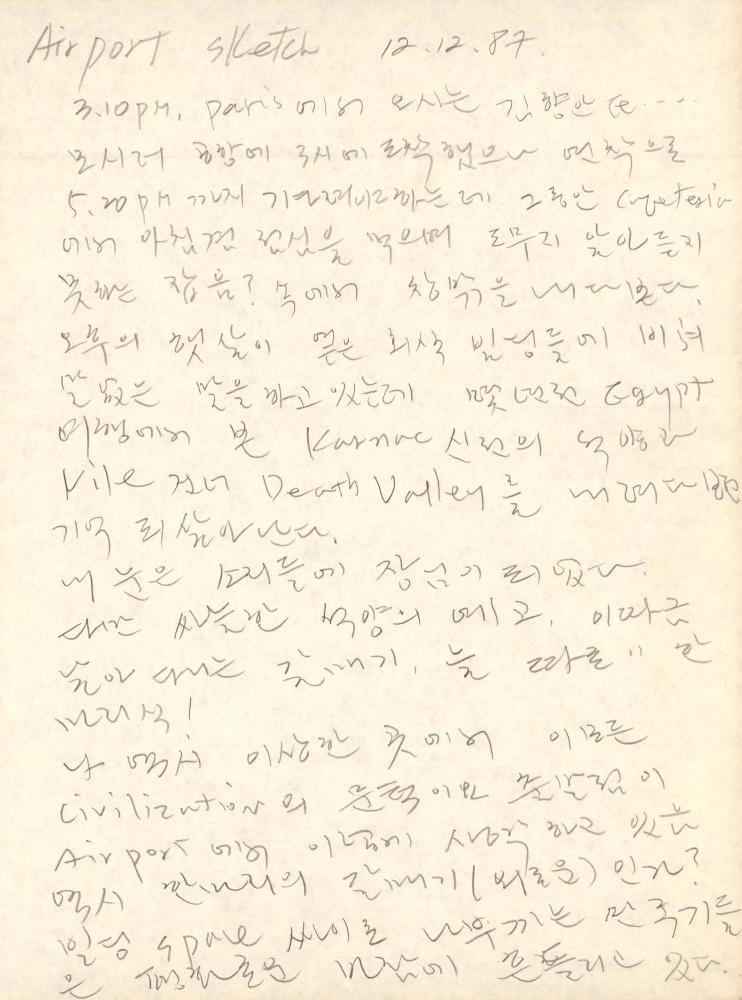 Airport sketch 12.12.87.
3.10 PM, paris에서 오시는 김향안 ....
모시러 공항에 3시에 도착했으나 연착으로
5.20 PM 까지 기다려야하는데 그동안 Cafeteria
에서 아침겸 점심을 먹으며 도무지 알아 듣지
못하는 잡음? 속에서 창밖을 내다본다.
오후의 햇살이 엷은 회색 빌딩들에 비쳐
말없는 말을 하고 있는데 몇년전 Egypt
여행에서 본 Karnac 신전의 석양과
Nile 건너 Death Valley를 내려다본
기억 되살아난다.
내 눈은 소리들에 장님이 되었다.
다만 싸늘한 석양의 예고, 이따금
날아 다니는 갈매기, 늘 따로 " 한
마리씩!
나 역시 이상한 곳에서 이모든
Civilization의 문턱이요 갈림이
Airport에서 이렇게 생각하고 있음
역시 한마리의 갈매기(외로운)인가?
빌딩 space 싸이로 나우끼는 만국기들
은 평화로운 바람에 흔들리고 있다.